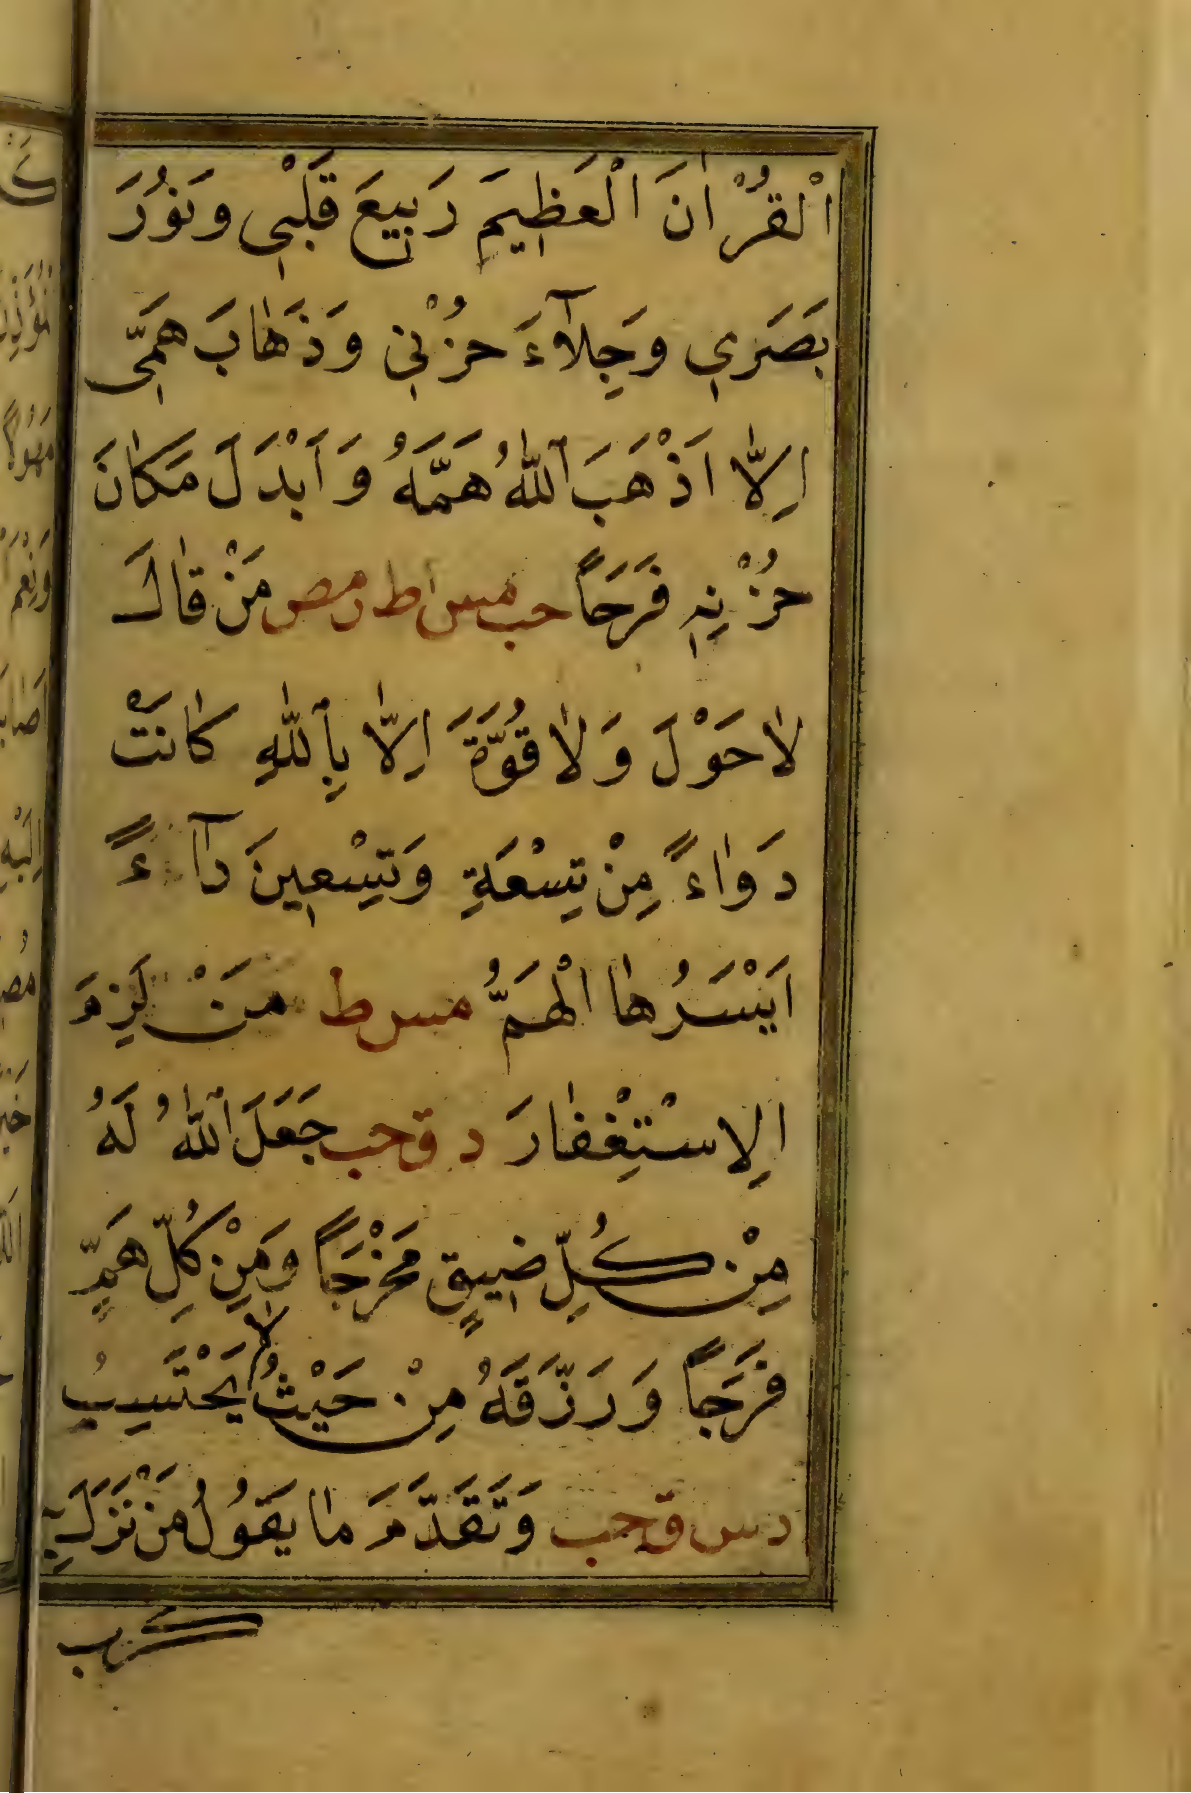 اْلقُرْاٰنَ الْعَظِيمَ رَبِيعَ قَلْبٖى وَنُورَ
بَصَرٖى وَجِلَآءَ حُزْنٖى وَذَهَابَ هَمّٖى
اِلَّا اَذْهَبَ اللّٰهُ هَمَّهُ وَاَبْدَلَ مَكَانَ
حُزْنِهٖ فَرَحًا حب مس ا ط ر مص مَنْ قَالَ
لَاحَوْلَ وَلَا قُوَّةَ اِلَّا بِاللّٰهِ كَانَتْ
دَوَاءً مِنْ تِسْعَةٍ وَتِسْعٖينَ دَآءً
اَيْسَرُهَا الْهَمُّ مس ط مَنْ لَزِمَ
الِاسْتِغْفَارَ د ق حب جَعَلَ اللّٰهُ لَهُ
مِنْ كُلِّ ضٖيقٍ مَخْرَجًا وَمِنْ كُلِّ هَمٍّ
فَرَجًا وَرَزَقَهُ مِنْ حَيْثُ لَا يَحْتَسِبُ
د س ق حب وَتَقَدَّمَ مَا يَقُولُ مَنْ نَزَلَ بِهٖ
كرب